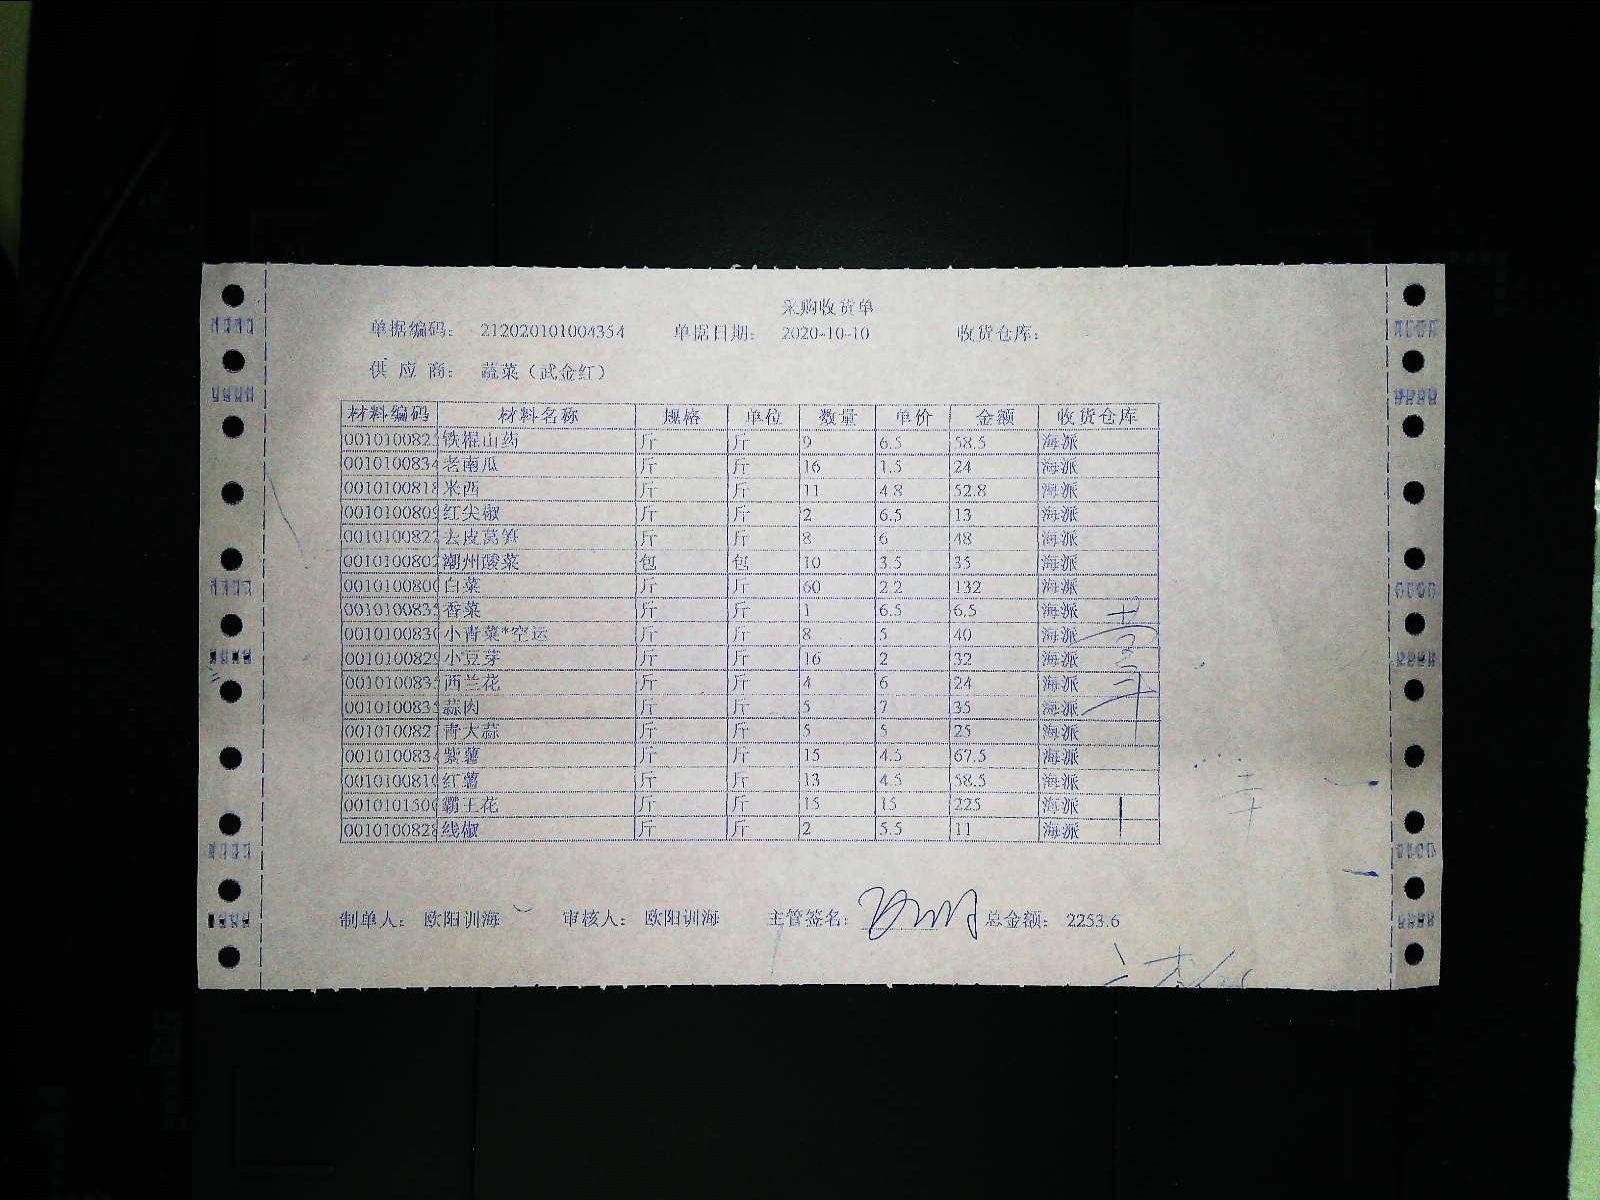 采购收货单
单据编码: 212020101004354 单据日期: 2020-10-10 收货仓库:
供应商: 蔬菜（武金红）
材料编码 材料名称 规格 单位 数量 单价 金额 收货仓库
001010082 铁棍山药 斤 斤 9 6.5 58.5 海派
0010100834 老南瓜 斤 斤 16 1.5 24 海派
0010100818 米西 斤 斤 11 4.8 52.8 海派
0010100809 红尖椒 斤 斤 2 6.5 13 海派
0010100827 去皮莴笋 斤 斤 8 6 48 海派
001010080 潮州酸菜 包 包 10 3.5 35 海派
0010100800 白菜 斤 斤 60 2.2 132 海派
001010083 香菜 斤 斤 1 6.5 6.5 海派
0010100830 小青菜*空运 斤 斤 8 5 40 海派
0010100829 小豆芽 斤 斤 16 2 32 海派
001010083 西兰花 斤 斤 4 6 24 海派
001010083 蒜肉 斤 斤 5 7 35 海派
001010082 青大蒜 斤 斤 5 5 25 海派
001010083 紫薯 斤 斤 15 4.5 67.5 海派
0010100810 红薯 斤 斤 13 4.5 58.5 海派
0010101500 霸王花 斤 斤 15 15 225 海派
0010100828 线椒 斤 斤 2 5.5 11 海派
制单人: 欧阳训海 审核人: 欧阳训海 主管签名: 总金额: 2253.6